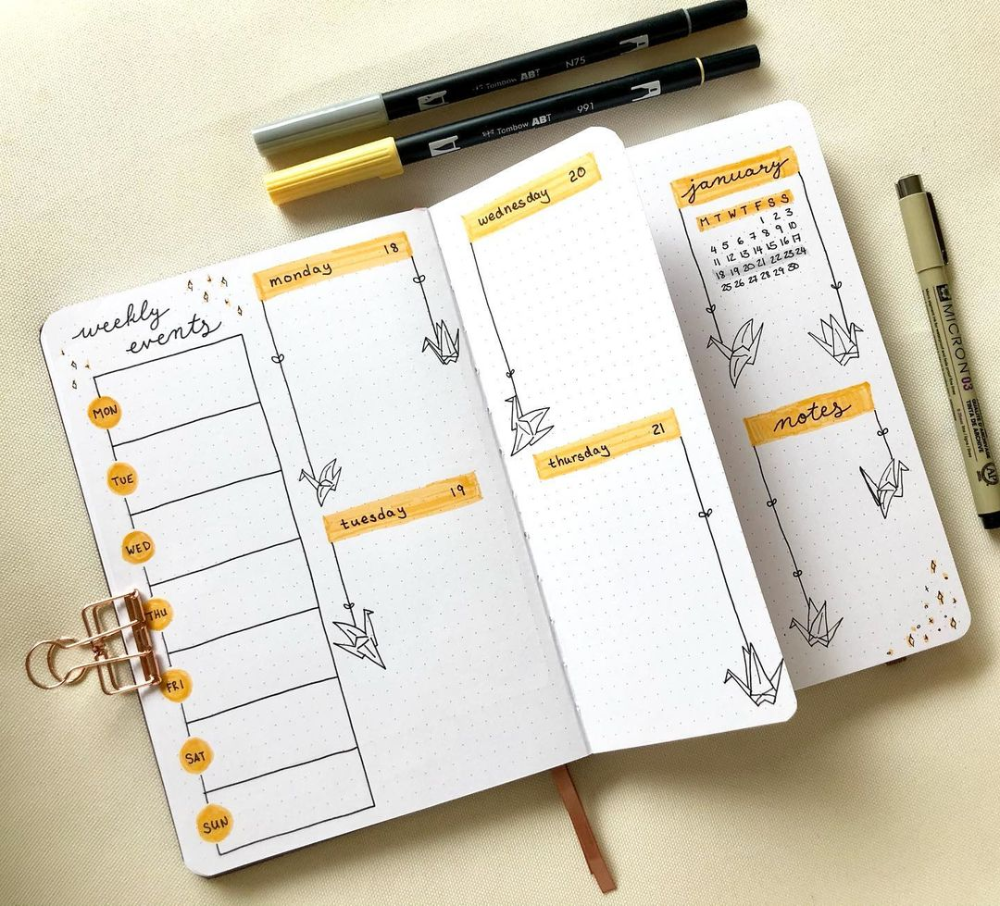 Tombow ABT N75
Tombow ABT 991
weekly
events
MON
TUE
WED
THU
FRI
SAT
SUN
monday 18
tuesday 19
wednesday 20
thursday 21
january
M T W T F S S
1 2 3
4 5 6 7 8 9 10
11 12 13 14 15 16 17
18 19 20 21 22 23 24
25 26 27 28 29 30
notes
MICRON 03